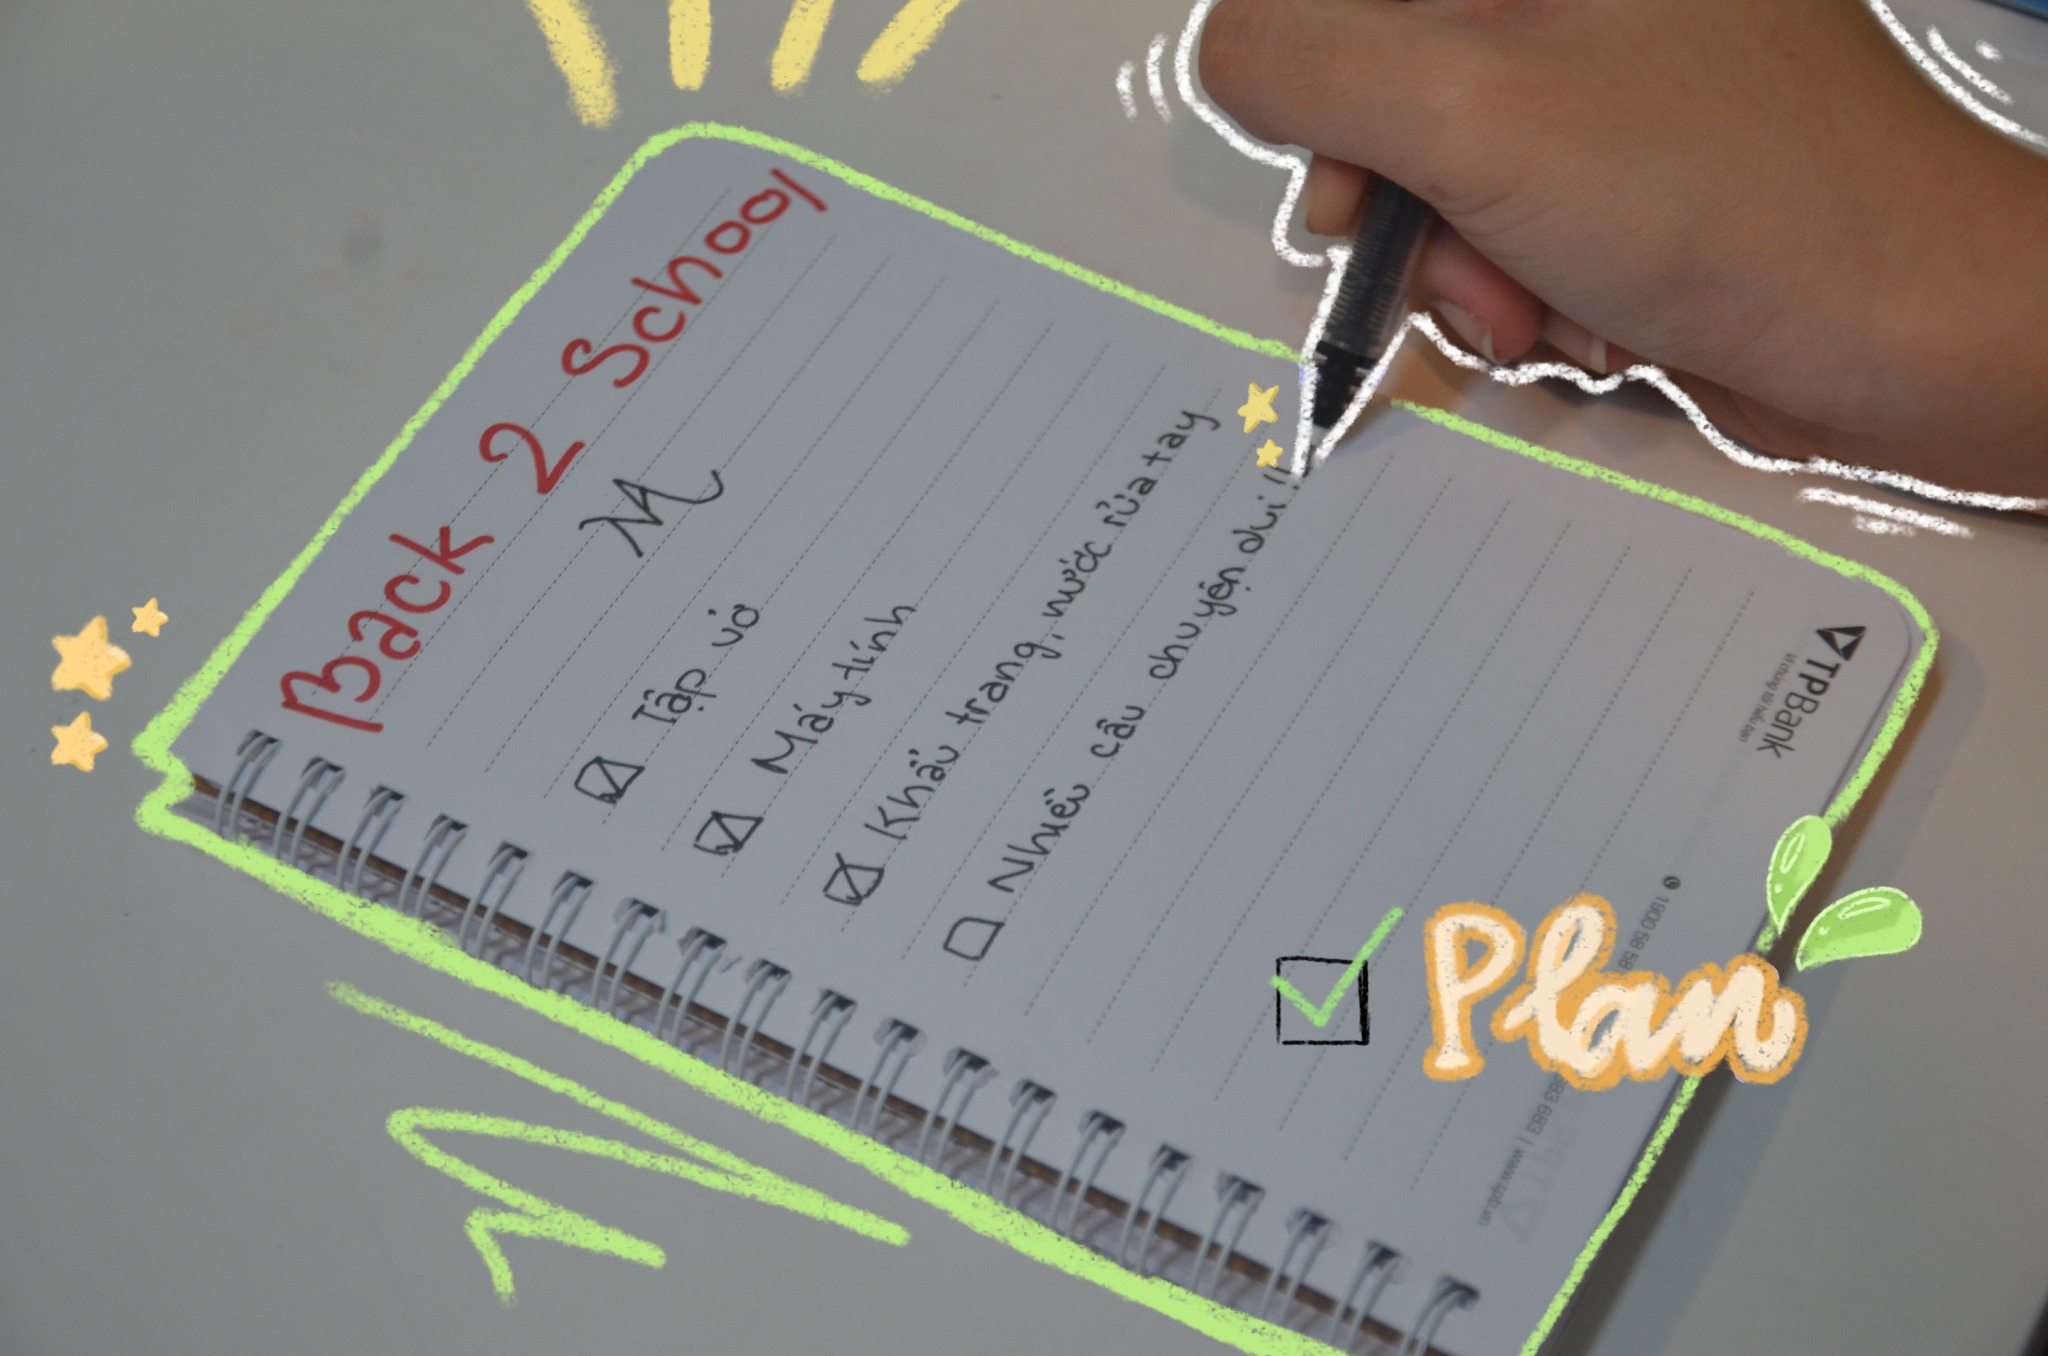 Back 2 School
M
Tập vở
Máy tính
Khẩu trang, nước rửa tay
Nhiều câu chuyện dui!!
Plan
TPBank
Vì chúng tôi hiểu bạn
1900 58 58
683 | www.tpb.vn